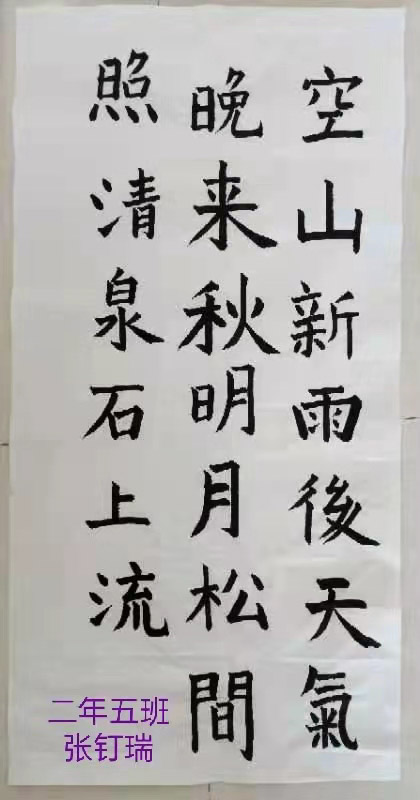 空山新雨後天氣
晚来秋明月松間
照清泉石上流
二年五班
张钉瑞